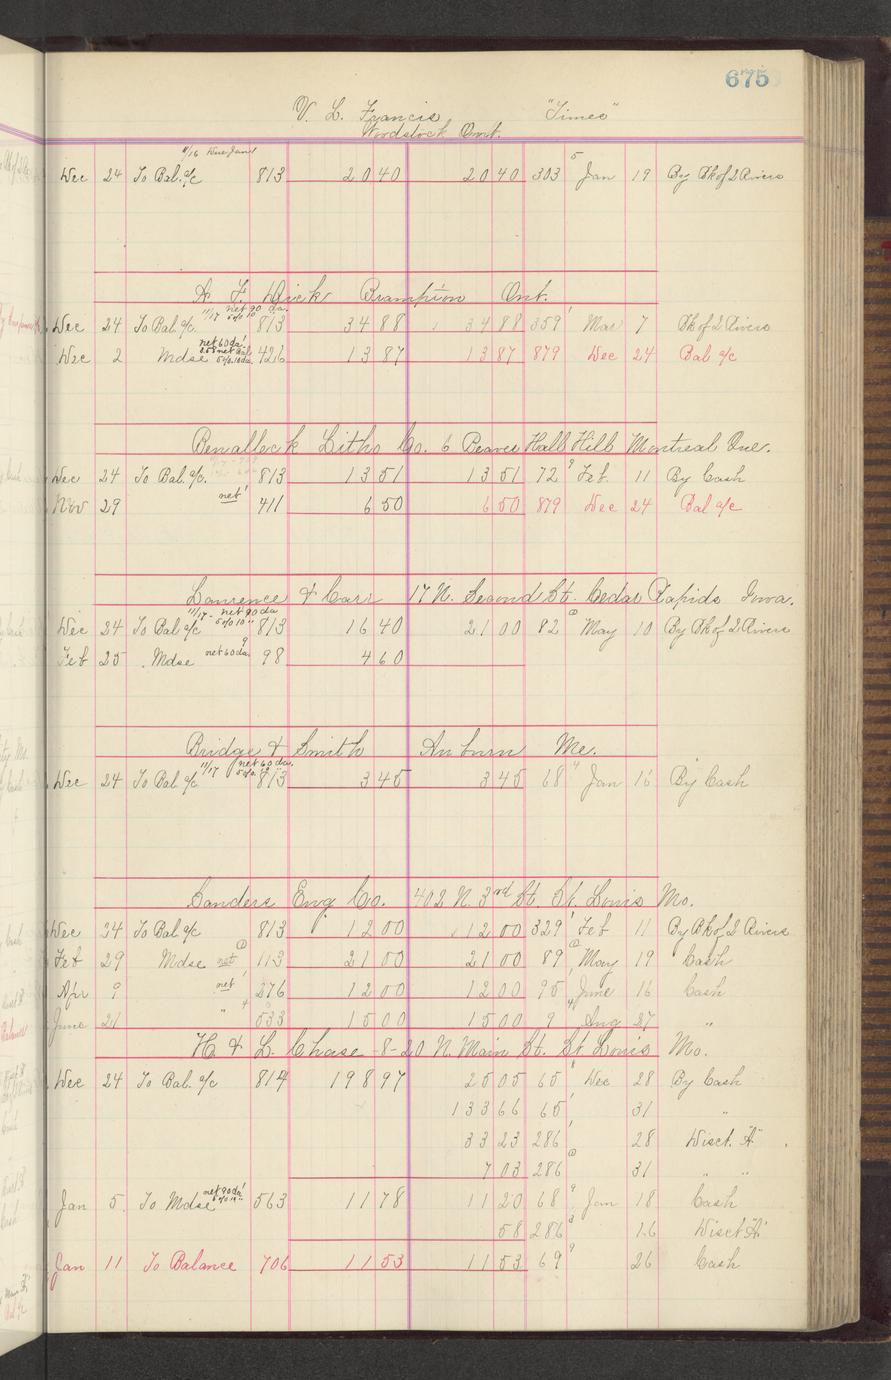 675
V. L. Francis "Times"
Woodstock Ont.
11/16 Due Jan 1
Dec 24 To Bal. a/c 813 20 40 20 40 303 5 Jan 19 By Bk of 2 Rivers
A. F. Dick Brampton Ont.
11/17 net 90 da.
5% 10
Dec 24 To Bal a/c 813 34 88 34 88 359 1 Mar 7 Bk of 2 Rivers
net 60 da
5% 10 da.
Dec 2 Mdse 426 13 87 13 87 879 Dec 24 Bal a/c
Benallack Litho Co. 6 Beaver Hall Hill Montreal Que.
Dec 24 To Bal a/c. 813 13 51 13 51 72 9 Feb 11 By Cash
Nov 29 net 1 411 6 50 6 50 879 Dec 24 Bal a/c
Lawrence & Carr 17 N. Second St. Cedar Rapids Iowa.
11/17 - net 90 da
5% 10 "
Dec 24 To Bal a/c 813 16 40 21 00 82 May 10 By Bk of 2 Rivers
Feb 25 Mdse net 60 da 9 98 4 60
Bridge & Smith Auburn Me.
11/17 net 60 da.
Dec 24 To Bal a/c 813 3 45 3 45 68 4 Jan 16 By Cash
Sanders Eng Co. 402 N. 3rd St. St. Louis Mo.
Dec 24 To Bal a/c 813 12 00 12 00 329 1 Feb 11 By Bk of 2 Rivers
Feb 29 Mdse net 113 21 00 21 00 89 May 19 Cash
Apr 9 net 1 276 12 00 12 00 95 1 June 16 Cash
June 21 " 4 533 15 00 15 00 9 4 Aug 27 "
H. & L. Chase -8-20 N. Main St. St Louis Mo.
Dec 24 To Bal. a/c 814 198 97 25 05 65 8 Dec 28 By Cash
133 66 65 1 31 "
33 23 286 1 28 Disct. "A"
7 03 286 31 " "
Jan 5 To Mdse net 90 da 1 563 11 78 11 20 68 9 Jan 18 Cash
58 286 3 16 Disct "A"
Jan 11 To Balance 706 11 53 11 53 69 9 26 Cash